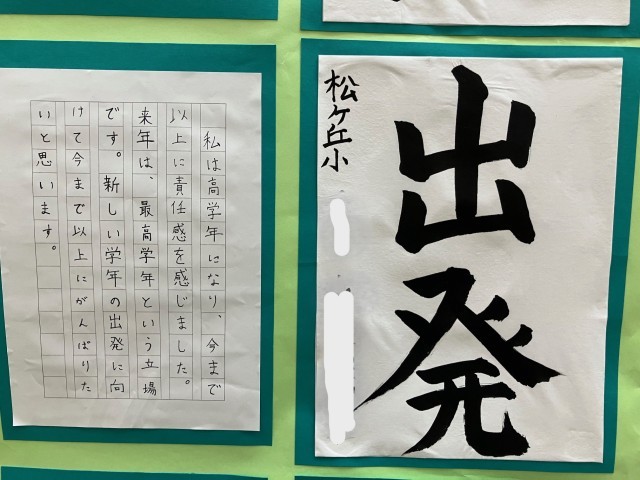 出発
松ケ丘小
私は高学年になり、今まで
以上に責任感を感じました。
来年は、最高学年という立場
です。新しい学年の出発に向
けて今まで以上にがんばりた
いと思います。